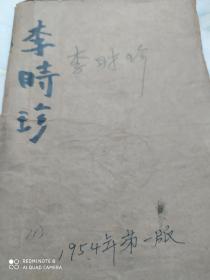 李時珍
李时珍
1954年第一版
REDMI NOTE 8
AI QUAD CAMERA